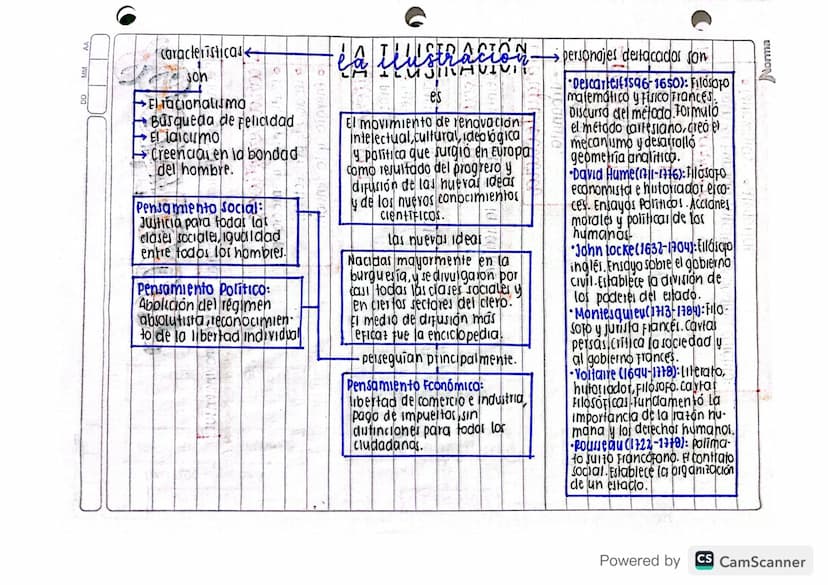 La ilustración
LA ILUSTRACIÓN
características
son
El racionalismo
Búsqueda de felicidad
El laicismo
Creencias en la bondad
del hombre.
Pensamiento Social:
Justicia para todas las
clases sociales, igualdad
entre todos los hombres.
Pensamiento Político:
Abolición del régimen
absolutista, reconocimien-
to de la libertad individual
es
El movimiento de renovación
intelectual, cultural, ideológica
y política que surgió en Europa
como resultado del progreso y
difusión de las nuevas ideas
y de los nuevos conocimientos
científicos.
las nuevas ideas
Nacidas mayormente en la
burguería, y se divulgaron por
casi todas las clases sociales y
en ciertos sectores del clero.
El medio de difusión más
eficaz fue la enciclopedia.
perseguían principalmente.
Pensamiento Económico:
libertad de comercio e industria,
pago de impuestos, sin
distinciones para todos los
ciudadanos.
personajes destacados son
•Descartes(1596-1650): Filósofo
matemático y Físico Francés.
Discurso del método. Formuló
el método cartesiano, creó el
mecanismo y desarrolló
geometría analítica.
•David Hume(1711-1776): Filósofo
economista e historiador esco-
cés. Ensayos Políticos. Acciones
morales y políticas de los
humanos.
•John Locke(1632-1704): Filósofo
inglés. Ensayo sobre el gobierno
civil. Establece la división de
los poderes del estado.
•Montesquieu(1713-1784): Filo-
sofo y Jurista Francés. Cartas
persas. Crítica la sociedad y
al gobierno Francés.
•Voltaire(1694-1778): Literato,
historiador, Filósofo. Cartas
Filosóficas. Fundamentó la
importancia de la razón hu-
mana y los derechos humanos.
•Rousseau(1722-1778): Polima-
to suizo francófono. El contrato
social. Establece la organización
de un estado.
Norma
AA
MM
DD
Powered by CS CamScanner